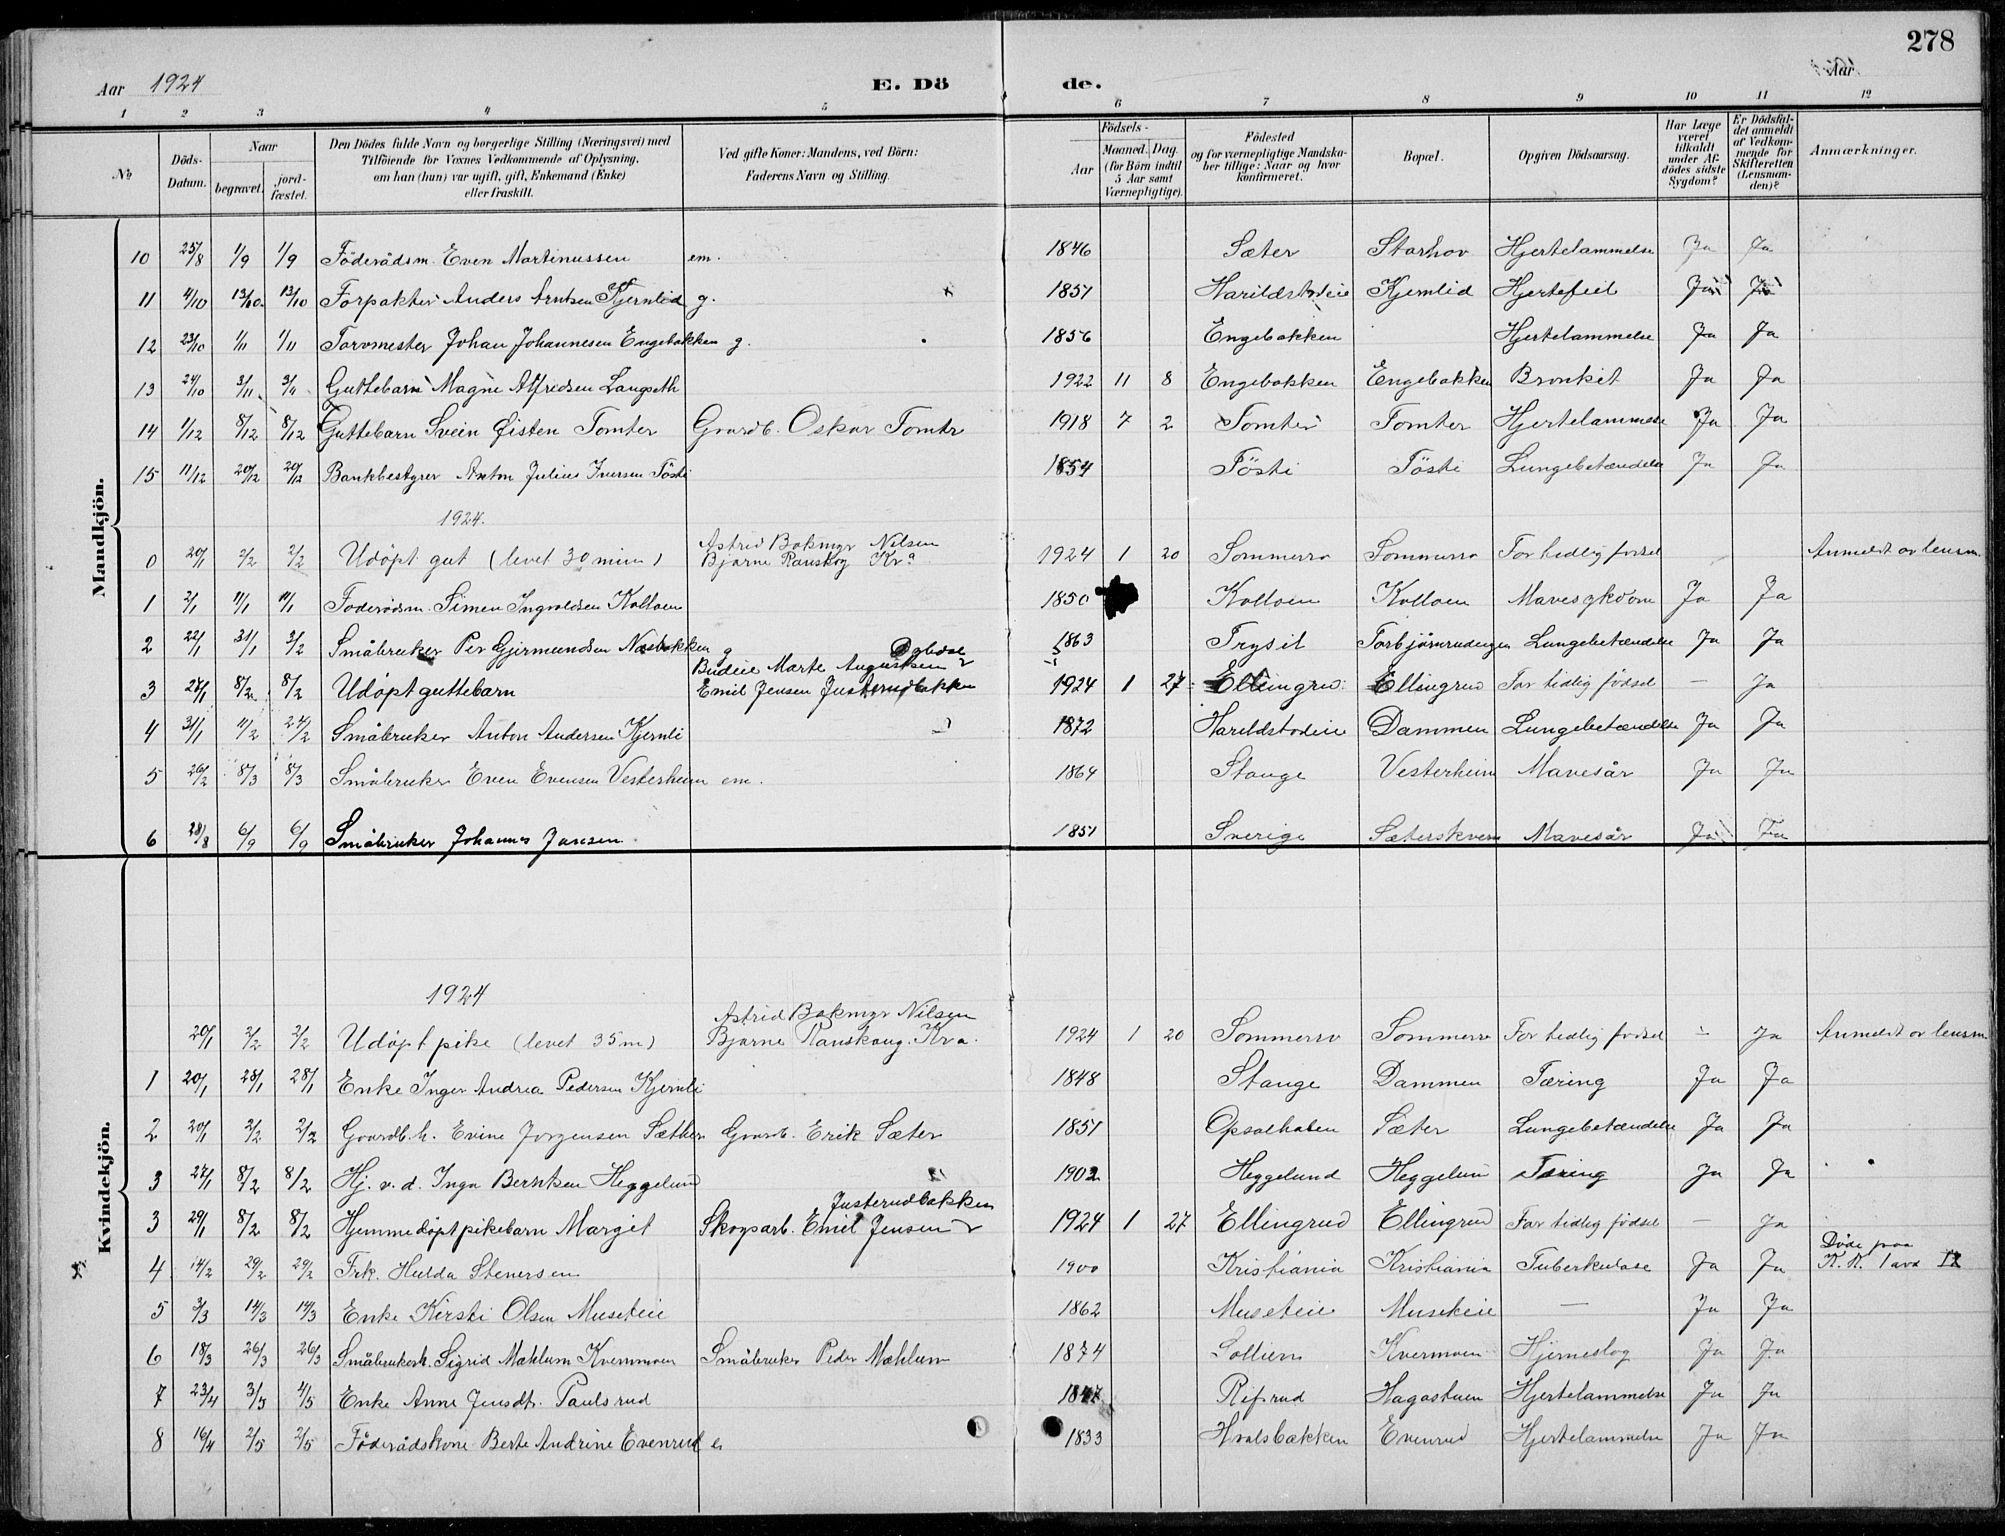 278
Aar 1924 E. Dö de. Aar
1 2 3 4 5 6 7 8 9 10 11 12
№ Döds-Datum. Naar begravet. jord-fæstet. Den Dödes fulde Navn og borgerlige Stilling (Næringsvei) med Tilföiende for Voxnes Vedkommende af Oplysning, om han (hun) var ugift, gift, Enkemand (Enke) eller fraskilt. Ved gifte Koner: Mandens, ved Börn: Faderens Navn og Stilling. Födsels- Aar Maaned. Dag. (for Börn indtil 5 Aar samt Værnepligtige). Födested og for værnepligtige Mandskaber tillige: Naar og hvor konfirmeret. Bopæl. Opgiven Dödsaarsag. Har Læge været tilkaldt under Afdödes sidste Sygdom? Er Dödsfaldet anmeldt af Vedkommende for Skifteretten (Lensmanden)? Anmærkninger.
Mandkjön.
10 25/8 1/9 1/9 Föderådsm. Even Martinussen em. 1846 Sæter Starhov Hjertelammelse Ja Ja
11 4/10 13/10 13/10 Forpakter Anders Arntsen Kjernlid g. 1851 Harildstadeie Kjernlid Hjertefeil Ja Ja
12 23/10 1/11 1/11 Torvmester Johan Johannesen Engebakken g. 1856 Engebakken Hjertelammelse Ja Ja
13 24/10 3/11 3/11 Guttebarn Magne Alfredsen Langseth 1922 11 8 Engebakken Engebakken Bronkit Ja Ja
14 1/12 8/12 8/12 Guttebarn Svein Øisten Tomter Gaardb. Oskar Tomter 1918 7 2 Tomter Tomter Hjertelammelse Ja Ja
15 11/12 20/12 20/12 Bankbestyrer Anton Julius Iversen Tösti 1854 Tösti Tösti Lungebetændelse Ja Ja
1924.
Astrid Bakmyr Nilsen
0 20/1 2/2 2/2 Udöpt gut (levet 30 min) Bjarne Ranskog Kra 1924 1 20 Sommerro Sommerro For tidlig fødsel Anmeldt av lensm.
1 2/1 11/1 11/1 Føderådsm. Simen Ingvaldsen Kolloen 1850 Kolloen Kolloen Mavesykdom Ja Ja
2 22/1 31/1 3/2 Småbruker Per Gjermundsen Næsbakken g 1863 Trysil Torbjørnrudengen Lungebetændelse Ja Ja
Budeie Marte Augustsen
3 27/1 8/2 8/2 Udöpt guttebarn Emil Jensen Justerudbakken 1924 1 27 Ellingrud Ellingrud For tidlig födsel — Ja
4 31/1 11/2 24/2 Småbruker Anton Andersen Kjernli 1872 Harildstadeie Dammen Lungebetændelse Ja Ja
5 26/2 8/3 8/3 Småbruker Even Evensen Vesterheim em. 1864 Stange Vesterheim Mavesår Ja Ja
6 28/8 6/9 6/9 Småbruker Johannes Jansen 1851 Sverige Sæterskvern Mavesår Ja Ja
Kvindekjön.
1924
Astrid Bakmyr Nilsen
20/1 2/2 2/2 Udöpt pike (levet 35 m) Bjarne Ranskoug. Kra. 1924 1 20 Sommerro Sommerro For tidlig fødsel — Ja Anmeldt av lensm
1 20/1 28/1 28/1 Enke Inger Andrea Pedersen Kjernli 1848 Stange Dammen Tæring Ja Ja
2 20/1 2/2 2/2 Gaardb.h. Evine Jørgensen Sæther Gaardb. Erik Sæter 1851 Opsalhaben Sæter Lungebetændelse Ja Ja
3 27/1 8/2 8/2 Hj. v. d. Inga Berntsen Heggelund 1902 Heggelund Heggelund Tæring Ja Ja
Justerudbakken
3 29/1 8/2 8/2 Hjemmedöpt pikebarn Margit Skogsarb. Emil Jensen 1924 1 27 Ellingrud Ellingrud For tidlig födsel — Ja
Døde paa
4 14/2 29/2 29/2 Frk. Hulda Stenersen 1900 Kristiania Kristiania Tuberkulose Ja Ja K. K. 1 avd II
5 3/3 14/3 14/3 Enke Kirsti Olsen Museteie 1862 Museteie Museteie — Ja Ja
6 18/3 26/3 26/3 Småbrukerh. Sigrid Mæhlum Kvernmoen Småbruker Peder Mæhlum 1874 Sollien Kvernmoen Hjerneslag Ja Ja
7 23/4 3/5 4/5 Enke Anne Jensdt. Paulsrud 1847 Refsrud Hagastuen Hjertelammelse Ja Ja
8 16/4 2/5 2/5 Föderådskone Berte Andrine Evenrud e 1833 Hvalsbækken Evenrud Hjertelammelse Ja Ja